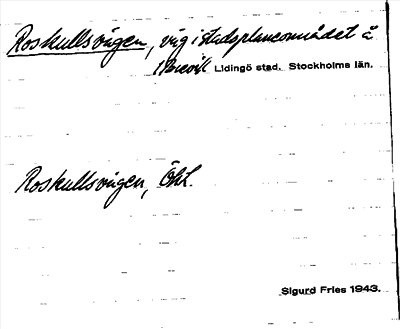 Roskullsvägen, väg i stadsplaneområdet å
Brevik Lidingö stad. Stockholms län.
Roskullsvägen, ÖhL.
Sigurd Fries 1943.